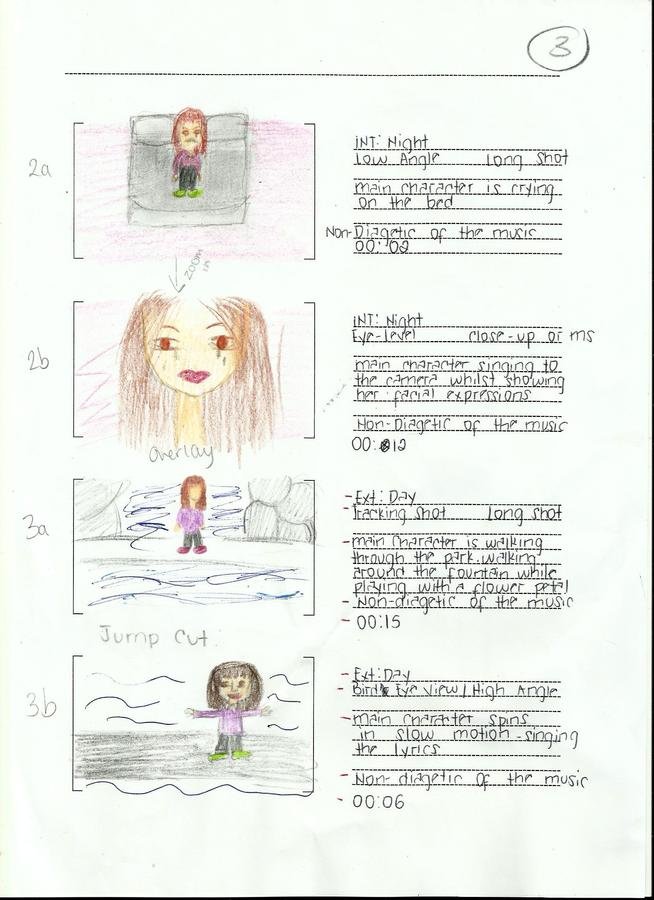 3
2a
INT: Night
Low Angle Long shot
main character is crying
on the bed
Non-Diagetic of the music
00:02
zoom
in
2b
INT: Night
Eye-level close-up or ms
main character singing to
the camera whilst showing
her facial expressions
Non-Diagetic of the music
00:12
overlay
3a
- Ext: Day
- Tracking shot Long shot
- main character is walking
through the park walking
around the fountain while
playing with a flower petal
- Non-diagetic of the music
- 00:15
Jump Cut
3b
- Ext: Day
- Bird's Eye View / High Angle
- main character spins
in slow motion - singing
the lyrics
- Non-diagetic of the music
- 00:06